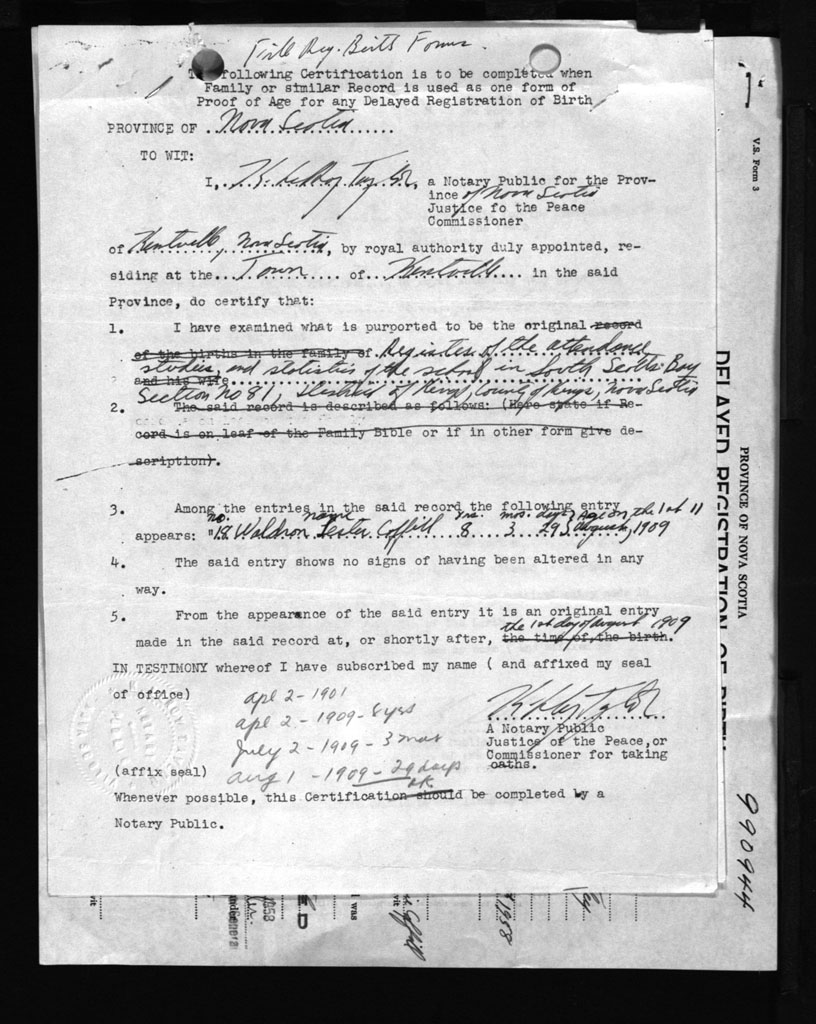 File Reg. Birth Forms.
The following Certification is to be completed when
Family or similar Record is used as one form of
Proof of Age for any Delayed Registration of Birth
PROVINCE OF ..Nova Scotia......
TO WIT:
I, ................., a Notary Public for the Prov-
ince of Nova Scotia
Justice fo the Peace
Commissioner
of Kentville, Nova Scotia, by royal authority duly appointed, re-
siding at the...Town...... of ..Kentville.... in the said
Province, do certify that:
1. I have examined what is purported to be the original record
of the births in the family of Register of the attendance
studies, and statistics of the school in South Scotts Bay
and his wife
Section No 81, District of Kings, County of Kings, Nova Scotia
2. The said record is described as follows: (Here state if Re-
cord is on leaf of the Family Bible or if in other form give de-
scription).
3. Among the entries in the said record the following entry
no. name yrs. mos. days Age on the 1st
appears: "18 Waldron Lester Coffill 8 3 29 August, 1909
4. The said entry shows no signs of having been altered in any
way.
5. From the appearance of the said entry it is an original entry
the 1st day of August 1909
made in the said record at, or shortly after, the time of the birth.
IN TESTIMONY whereof I have subscribed my name ( and affixed my seal
of office)
apl 2 - 1901
apl 2 - 1909 - 8 yrs
July 2 - 1909 - 3 mos
aug 1 - 1909 - 29 days
OK
A Notary Public
Justice of the Peace, or
Commissioner for taking
oaths.
(affix seal)
Whenever possible, this Certification should be completed by a
Notary Public.
V.S. Form 3
PROVINCE OF NOVA SCOTIA
DELAYED REGISTRATION OF BIRTH
990944
1958
I was
Coffill